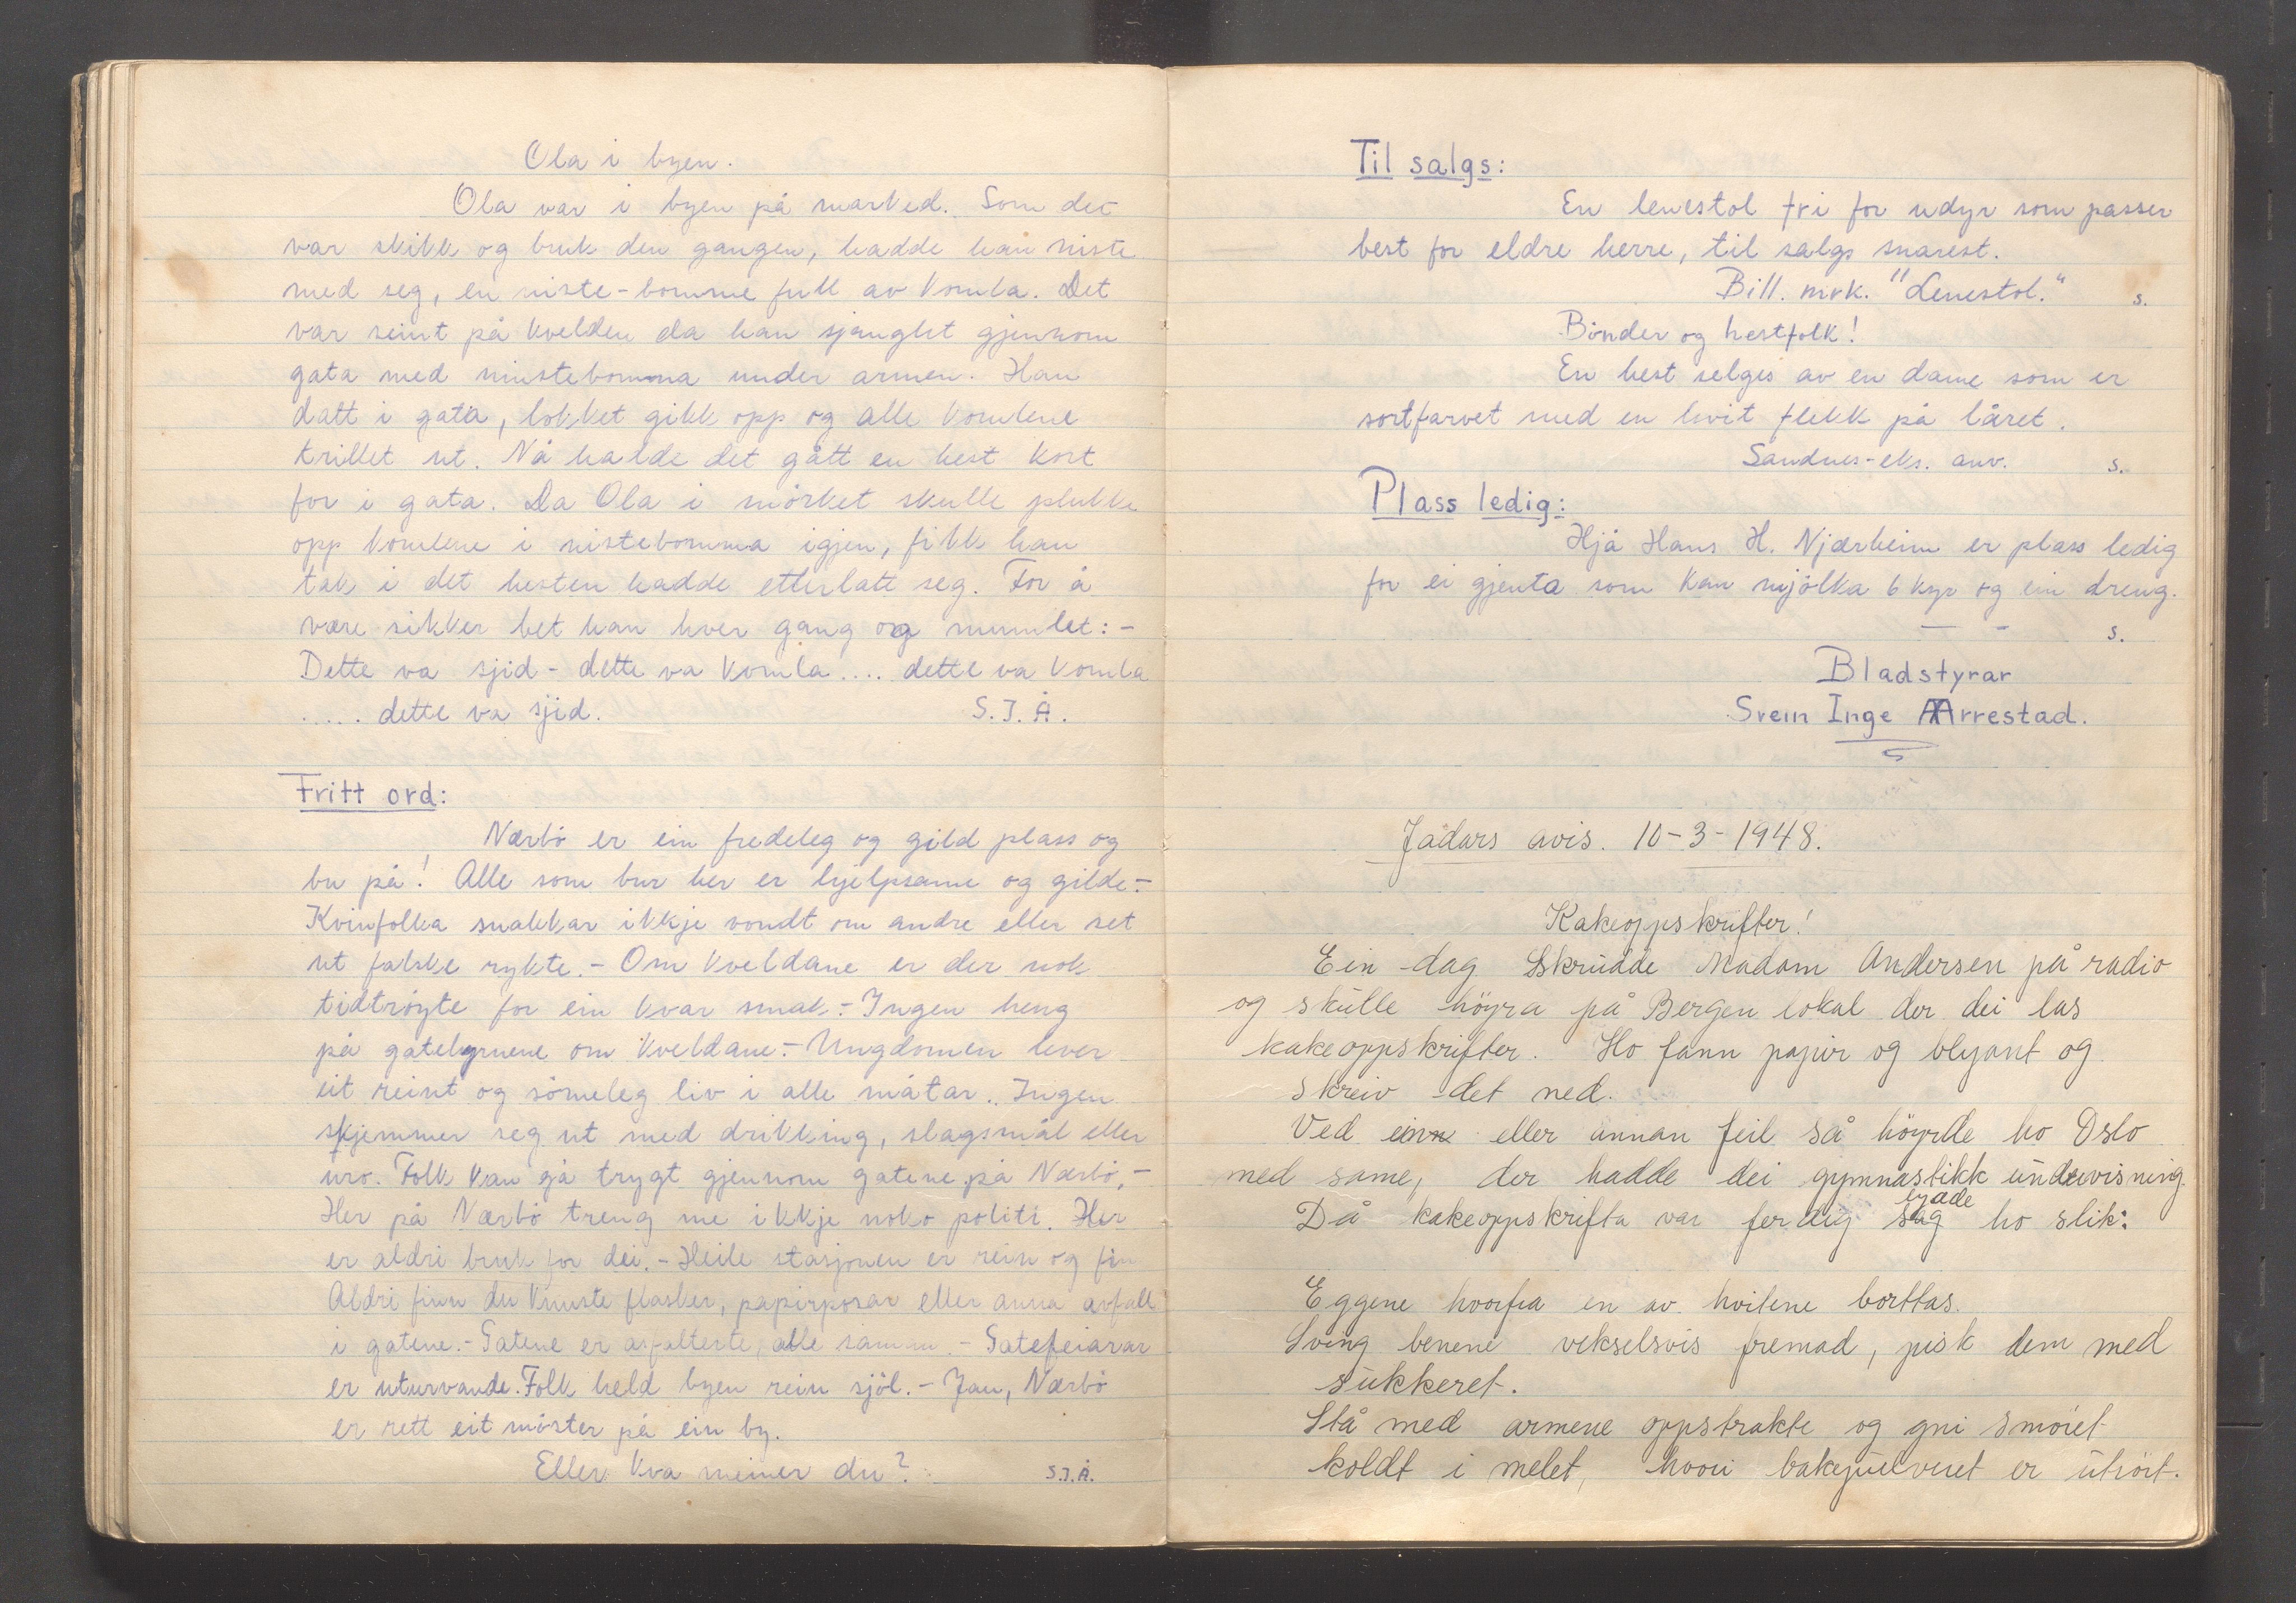 Ola i byen.
Ola var i byen på marked. Som det
var skikk og bruk den gangen, hadde han niste
med seg, en niste-bomme full av komla. Det
var seint på kvelden da han sjanglet gjennom
gata med nistebomma under armen. Han
datt i gata, lokket gikk opp og alle komlene
trillet ut. Nå hadde det gått en hest kort
for i gata. Da Ola i mörket skulle plukke
opp komlene i nistebomma igjen, fikk han
tak i det hesten hadde etterlatt seg. For å
være sikker bet han hver gang og mumlet: -
Dette va sjid - dette va komla .... dette va komla
..... dette va sjid. S. I. Å.
Fritt ord:
Nærbö er ein fredeleg og gild plass og
bu på! Alle som bur her er hjelpsame og gilde. -
Kvinfolka snakkar ikkje vondt om andre eller set
ut falske rykte. - Om kveldane er der nok
tidtröyte for ein kvar smak. - Ingen heng
på gatehyrnene om kveldane. - Ungdomen lever
eit reint og sömeleg liv i alle måtar. Ingen
skjemmer seg ut med drikking, slagsmål eller
uro. Folk kan gå trygt gjennom gatene på Nærbö. -
Her på Nærbö treng me ikkje noko politi. Her
er aldri bruk for dei. - Heile stasjonen er rein og fin
Aldri finn du knuste flasker, papirposar eller anna avfall
i gatene. - Gatene er asfalterte, alle saman. - Gatefeiarar
er uturvande. Folk held byen rein sjöl. - Jau, Nærbö
er rett eit mönster på ein by.
Eller kva meiner du? S.I.Å.
Til salgs:
En lenestol fri for udyr som passer
best for eldre herre, til salgs snarest.
Bill. mrk. "Lenestol." s.
Bönder og hestfolk!
En hest selges av en dame som er
sortfarvet med en hvit flekk på låret.
Sandnes-eks. anv. s.
Plass ledig:
Hjå Hans H. Njærheim er plass ledig
for ei gjenta som kan mjölka 6 kyr og ein dreng.
— - s.
Bladstyrar
Svein Inge Årrestad.
Jadars avis. 10-3-1948.
Kakeoppskrifter!
Ein dag skrudde Madam Andersen på radio
og skulle höyra på Bergen lokal der dei las
kakeoppskrifter. Ho fann papir og blyant og
skreiv det ned.
Ved ein eller annan feil så höyrde ho Oslo
med same, der hadde dei gymnastikk undervisning.
Då kakeoppskrifta var ferdig lyade ho slik:
Eggene hvorfra en av hvitene borttas.
Sving benene vekselsvis fremad, pisk dem med
sukkeret.
Stå med armene oppstrakte og gni smöret
koldt i melet, hvori bakepulveret er utrört.